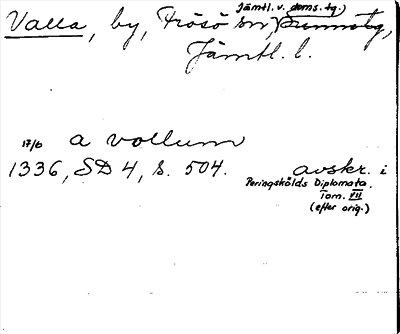 Jämtl. v. doms. tg.)
Valla, by, Frösö sn,
Jämtl. l.
17/6 a vollum
1336, SD 4, s. 504. avskr. i
Peringskölds Diplomata.
Tom. VII
(efter orig.)